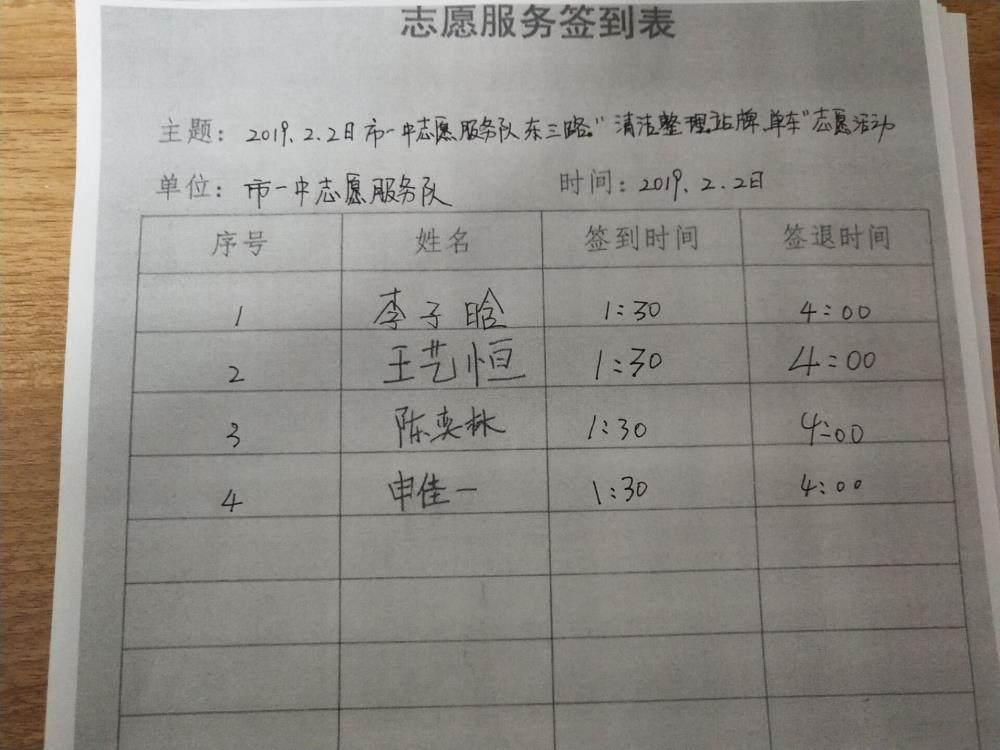 志愿服务签到表
主题: 2019.2.2日市一中志愿服务队东三路"清洁整理站牌、单车"志愿活动
单位: 市一中志愿服务队 时间: 2019.2.2日
序号 姓名 签到时间 签退时间
1 李子晗 1:30 4:00
2 王艺恒 1:30 4:00
3 陈奕林 1:30 4:00
4 申佳一 1:30 4:00